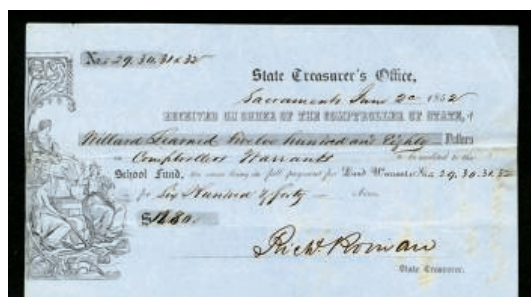 Nos 29. 30. 31 & 32
State Treasurer's Office,
Sacramento June 2d 1852
RECEIVED ON ORDER OF THE COMPTROLLER OF STATE, of
Willard Learned Twelve hundred and Eighty Dollars
in Comptrollers Warrants to be credited to the
School Fund, the same being in full payment for Land Warrants Nos 29. 30. 31. 32
for Six Hundred & forty Acres
$1280.
Richd Roman
State Treasurer.